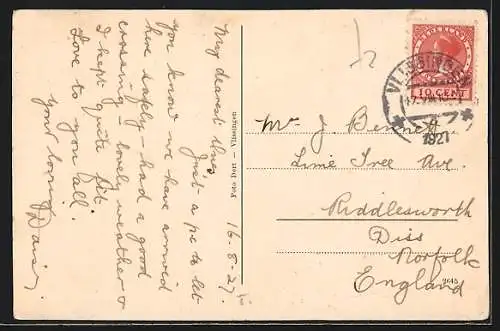 16-8-27.
My dearest Ones
Just a p.c. to let
you know we have arrived
here safely - had a good
crossing - lovely weather &
I kept quite fit
Love to you all.
Your loving
Foto Dert - Vlissingen
NEDERLAND
10 CENT
VLISSINGEN
1927
Mr. J. Bennett.
Lime Tree Ave.
Riddlesworth
Diss
Norfolk
England